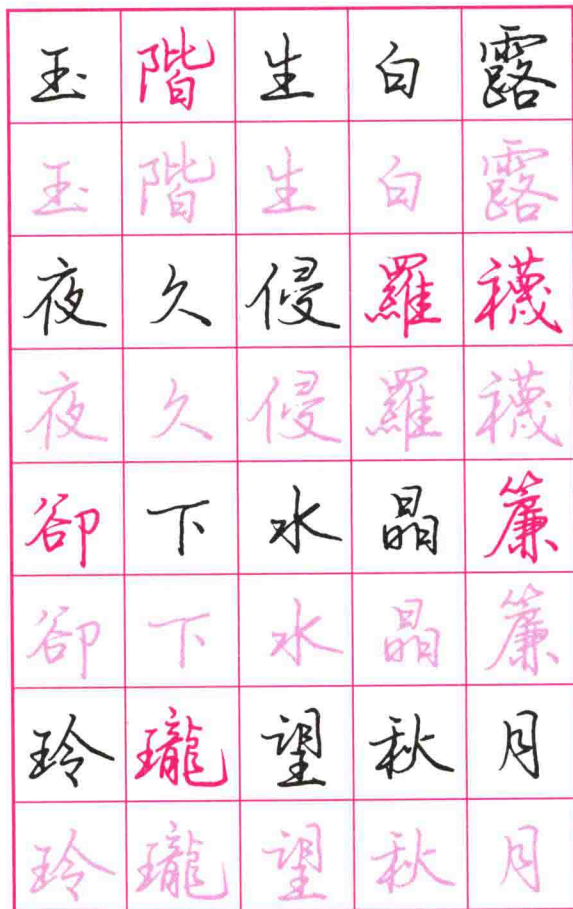 玉階生白露
玉階生白露
夜久侵羅襪
夜久侵羅襪
卻下水晶簾
卻下水晶簾
玲瓏望秋月
玲瓏望秋月